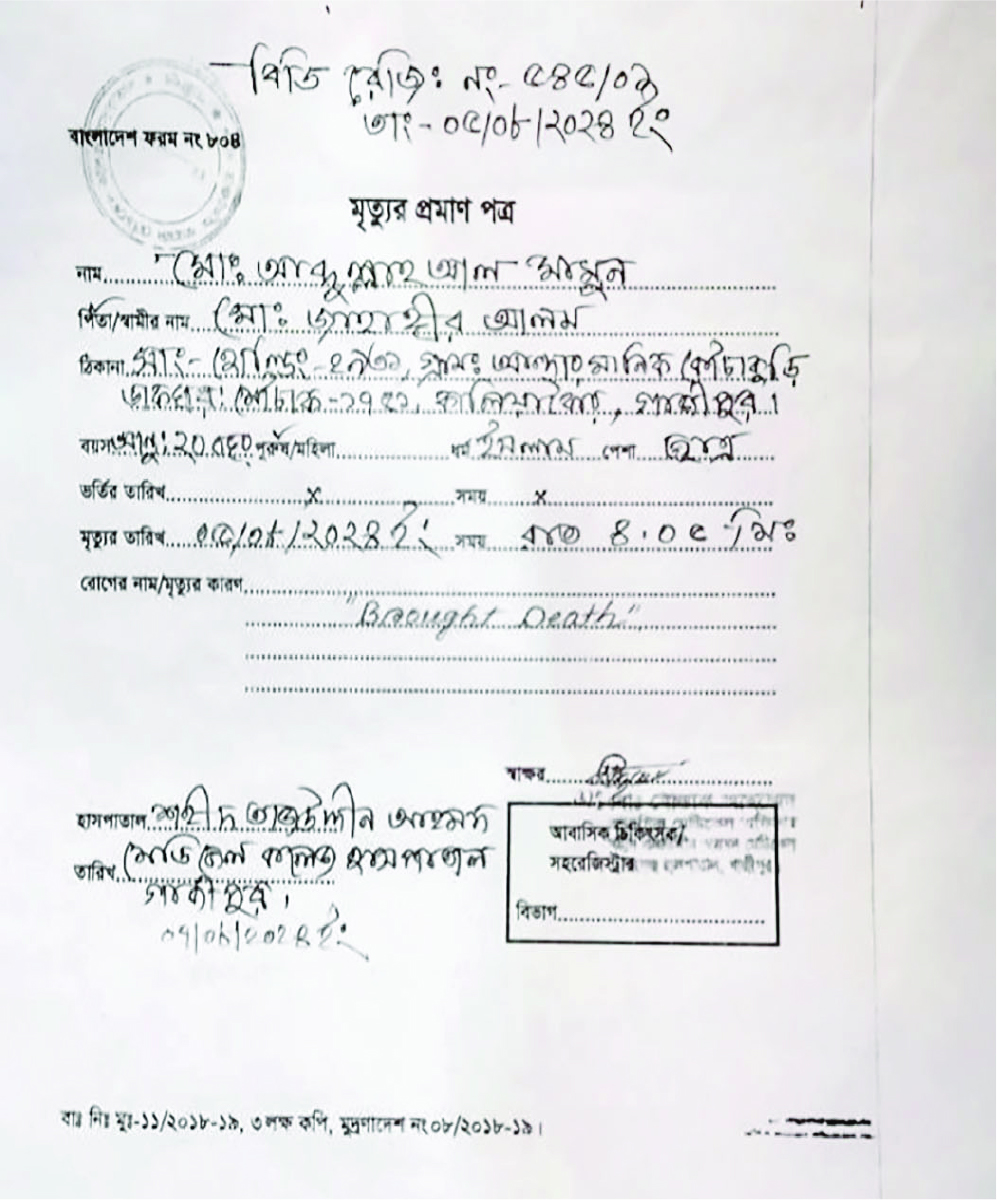 বিডি রেজিঃ নং- ৫৪৫/০৯
তাং - ০৫/০৮/২০২৪ ইং
বাংলাদেশ ফরম নং ৮০৪
মৃত্যুর প্রমাণ পত্র
নাম মোঃ আব্দুল্লাহ আল মামুন
পিতা/স্বামীর নাম মোঃ জাহাঙ্গীর আলম
ঠিকানা সাং- হোল্ডিং- গ্রামঃ আন্দার মানিক
ডাকঘর: মৌচাক-১৭৫১, কালিয়াকৈর, গাজীপুর।
বয়স আনু: ২০ পুরুষ/মহিলা ধর্ম ইসলাম পেশা ছাত্র
ভর্তির তারিখ x সময় x
মৃত্যুর তারিখ ০৫/০৮/২০২৪ ইং সময় রাত ৪.০৫ মিঃ
রোগের নাম/মৃত্যুর কারণ
"Brought Death"
স্বাক্ষর
হাসপাতাল শহীদ তাজউদ্দীন আহমদ
আবাসিক চিকিৎসক/
তারিখ মেডিকেল কলেজ হাসপাতাল
সহরেজিস্ট্রার
গাজীপুর।
বিভাগ
০৭/০৮/২০২৪ ইং
বাঃ নিঃ মুঃ-১১/২০১৮-১৯, ৩ লক্ষ কপি, মুদ্রণাদেশ নং ০৮/২০১৮-১৯।